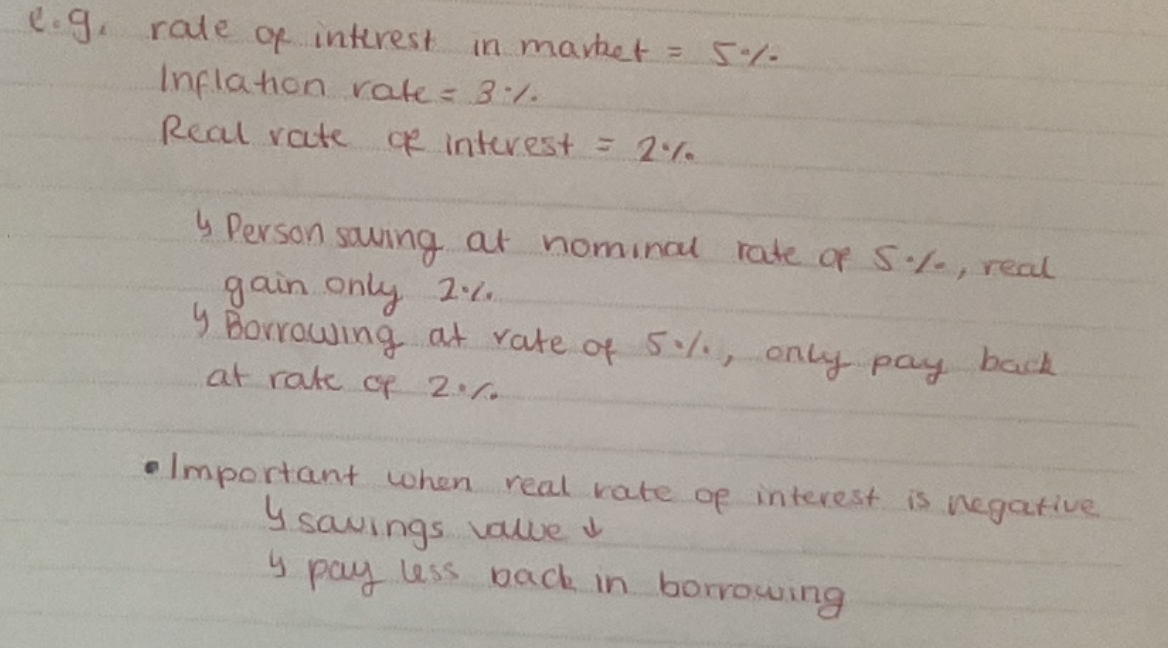 e.g. rate of interest in market = 5%
Inflation rate = 3%
Real rate of interest = 2%
↳ Person saving at nominal rate of 5%, real
gain only 2%
↳ Borrowing at rate of 5%, only pay back
at rate of 2%
• Important when real rate of interest is negative
↳ savings value ↓
↳ pay less back in borrowing